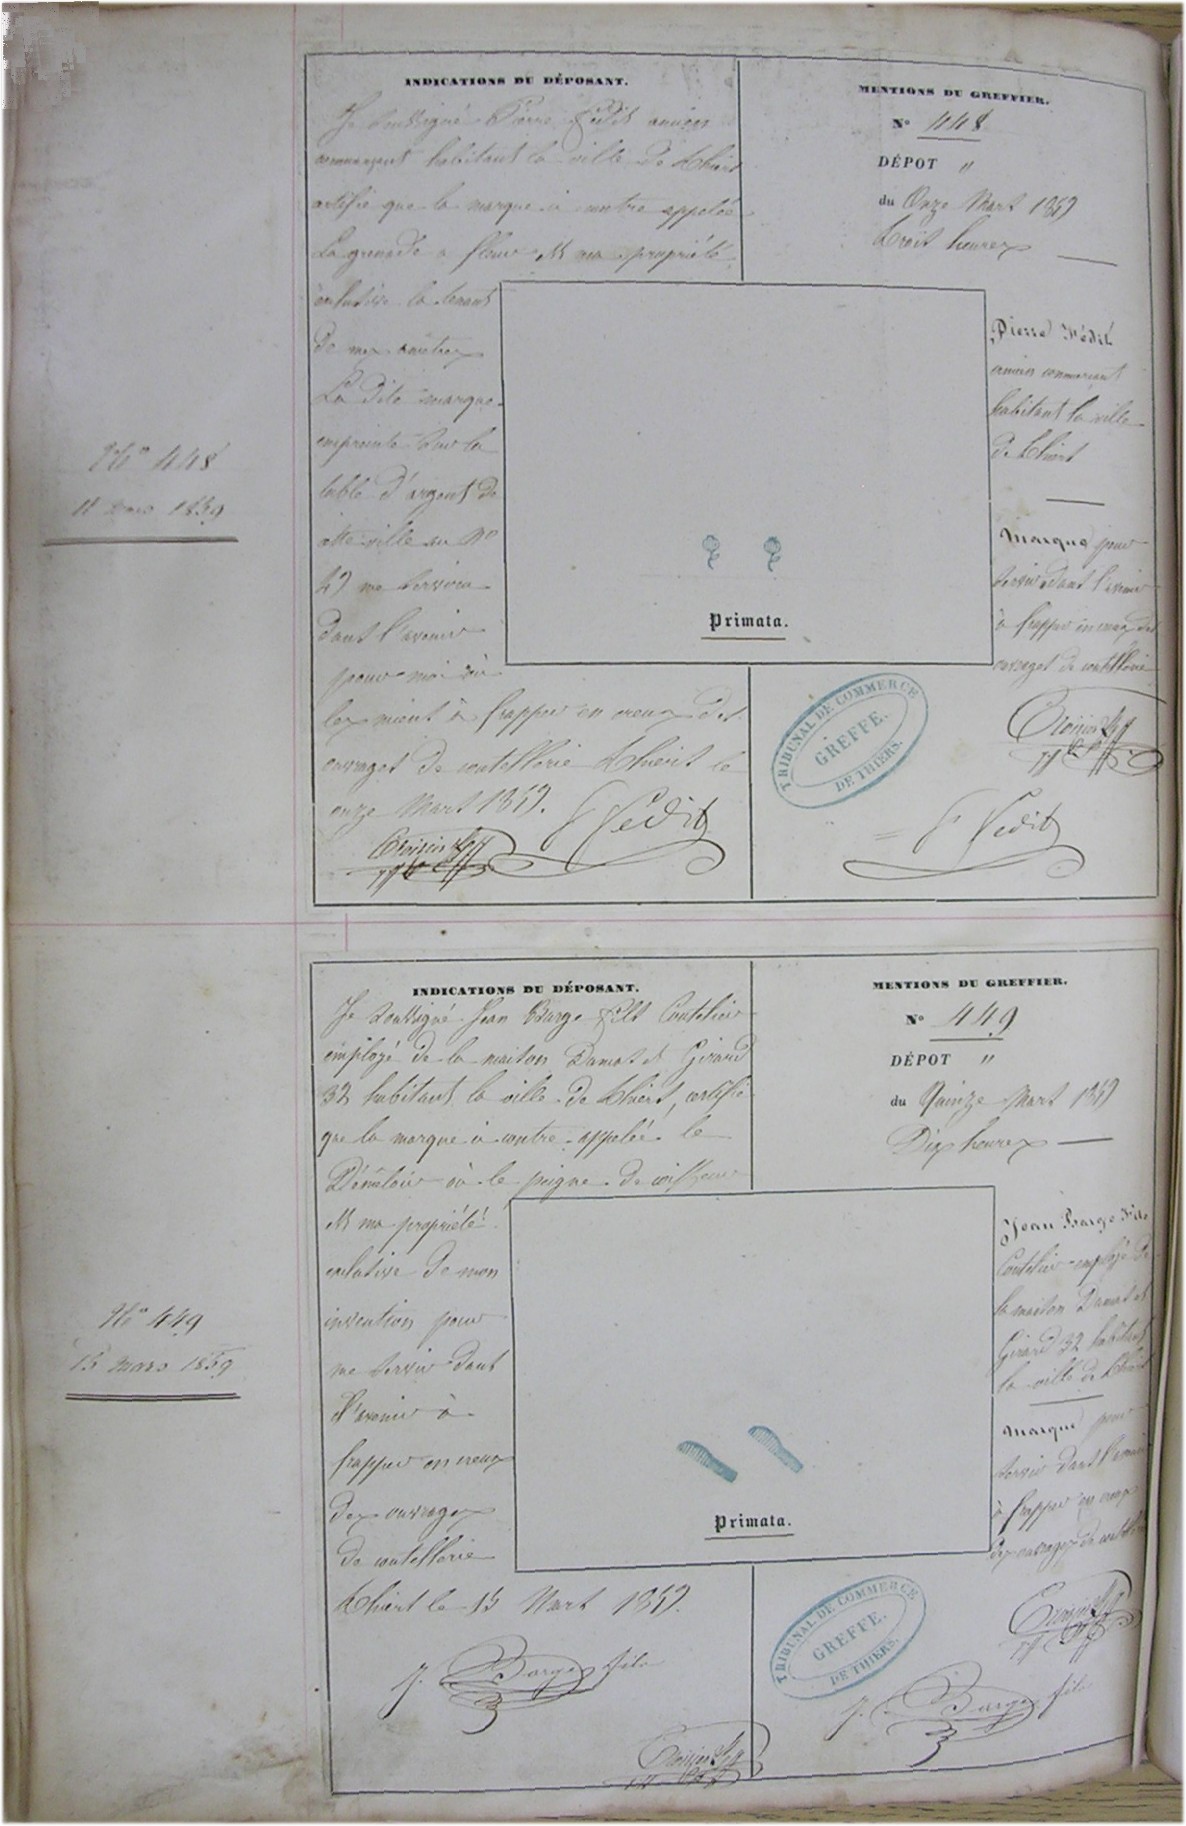 N° 448
11 mars 1859
INDICATIONS DU DÉPOSANT.
Je soussigné Pierre Fédit ancien
commerçant habitant la ville de Thiers
certifie que la marque ci contre appelée
La grenade à fleur est ma propriété
exclusive la tenant
de mes ancêtres
La dite marque
empreinte sur la
table d'argent de
cette ville au N°
me servira
dans l'avenir
pour moi ou
les miens à frapper en creux des
ouvrages de coutellerie Thiers le
onze Mars 1859.
P Fédit
MENTIONS DU GREFFIER.
N° 448
DÉPOT "
du Onze Mars 1859
heures
Pierre Fédit
ancien commerçant
habitant la ville
de Thiers
Marque pour
servir dans l'avenir
à frapper en creux des
ouvrages de coutellerie
Primata.
TRIBUNAL DE COMMERCE
GREFFE.
DE THIERS.
P Fédit
N° 449
15 mars 1859
INDICATIONS DU DÉPOSANT.
Je soussigné Jean Barge fils Coutelier
employé de la maison Damas et Girard
32 habitant la ville de Thiers, certifie
que la marque ci contre appelée le
Démêloir où le peigne de coiffeur
est ma propriété
exclusive de mon
invention pour
me servir dans
l'avenir à
frapper en creux
des ouvrages
de coutellerie
Thiers le 15 Mars 1859.
J. Barge fils
MENTIONS DU GREFFIER.
N° 449
DÉPOT "
du Quinze Mars 1859
Dix heures
Jean Barge Fils
Coutelier employé de
la maison Damas et
Girard 32 habitant
la ville de Thiers
Marque pour
servir dans l'avenir
à frapper en creux
des ouvrages de coutellerie
Primata.
TRIBUNAL DE COMMERCE
GREFFE.
DE THIERS.
J. Barge fils